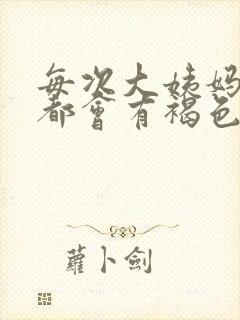 每次大姨妈
都會有褐色
蘿卜劍